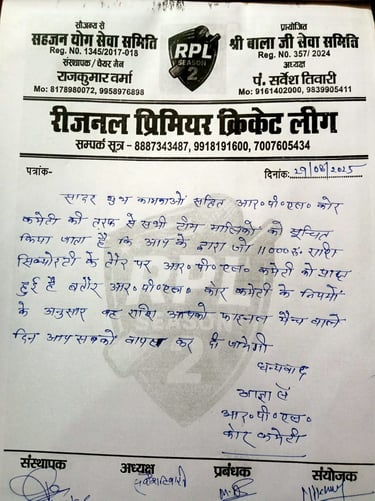 सौजन्य से
सहजन योग सेवा समिति
Reg. NO. 1345/2017-018
संस्थापक / चेयर मैन
राजकुमार वर्मा
Mo: 8178980072, 9958976898
RPL
SEASON
2
प्रायोजित
श्री बाला जी सेवा समिति
Reg. No. 357/ 2024
अध्यक्ष
पं. सर्वेश तिवारी
Mo: 9161402000, 9839905411
रीजनल प्रिमियर क्रिकेट लीग
सम्पर्क सूत्र - 8887343487, 9918191600, 7007605434
पत्रांक- दिनांक:
सादर शुभ कामनाओं सहित आर॰ पी॰ एल॰ कोर
कमेटी की तरफ से सभी टीम मालिकों को सूचित
किया जाता है कि आप के द्वारा जो 11000रु॰ राशि
सिक्योरिटी के तौर पर आर॰ पी॰ एल॰ कमेटी को प्राप्त
हुई है बतौर आर॰ पी॰ एल॰ कोर कमेटी के नियमों
के अनुसार वह राशि आपको फाइनल मैच वाले
दिन आप सबको वापस कर दी जायेगी
धन्यवाद
आज्ञा से
आर॰ पी॰ एल॰
कोर कमेटी
संस्थापक अध्यक्ष प्रबंधक संयोजक